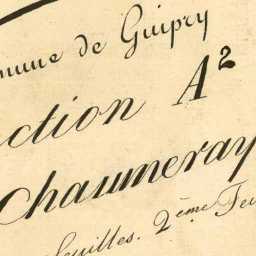 mmune de Guipry
ction A²
Chaumeray
feuilles. 2ème Feu